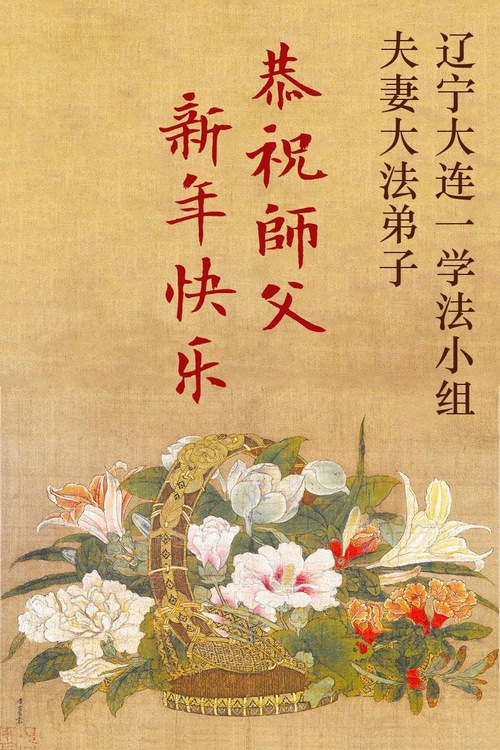 辽宁大连一学法小组
夫妻大法弟子
恭祝師父
新年快乐